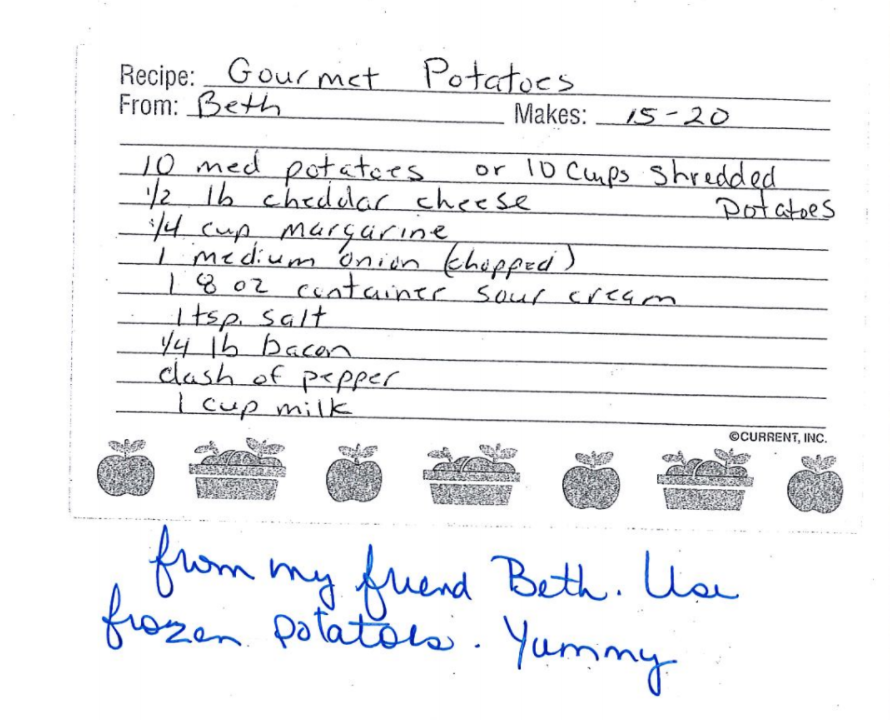 Recipe: Gourmet Potatoes
From: Beth Makes: 15-20
10 med potatoes or 10 cups shredded
1/2 lb cheddar cheese potatoes
1/4 cup margarine
1 medium onion (chopped)
1 8 oz container sour cream
1 tsp. salt
1/4 lb bacon
dash of pepper
1 cup milk
©CURRENT, INC.
from my friend Beth. Use
frozen potatoes. Yummy